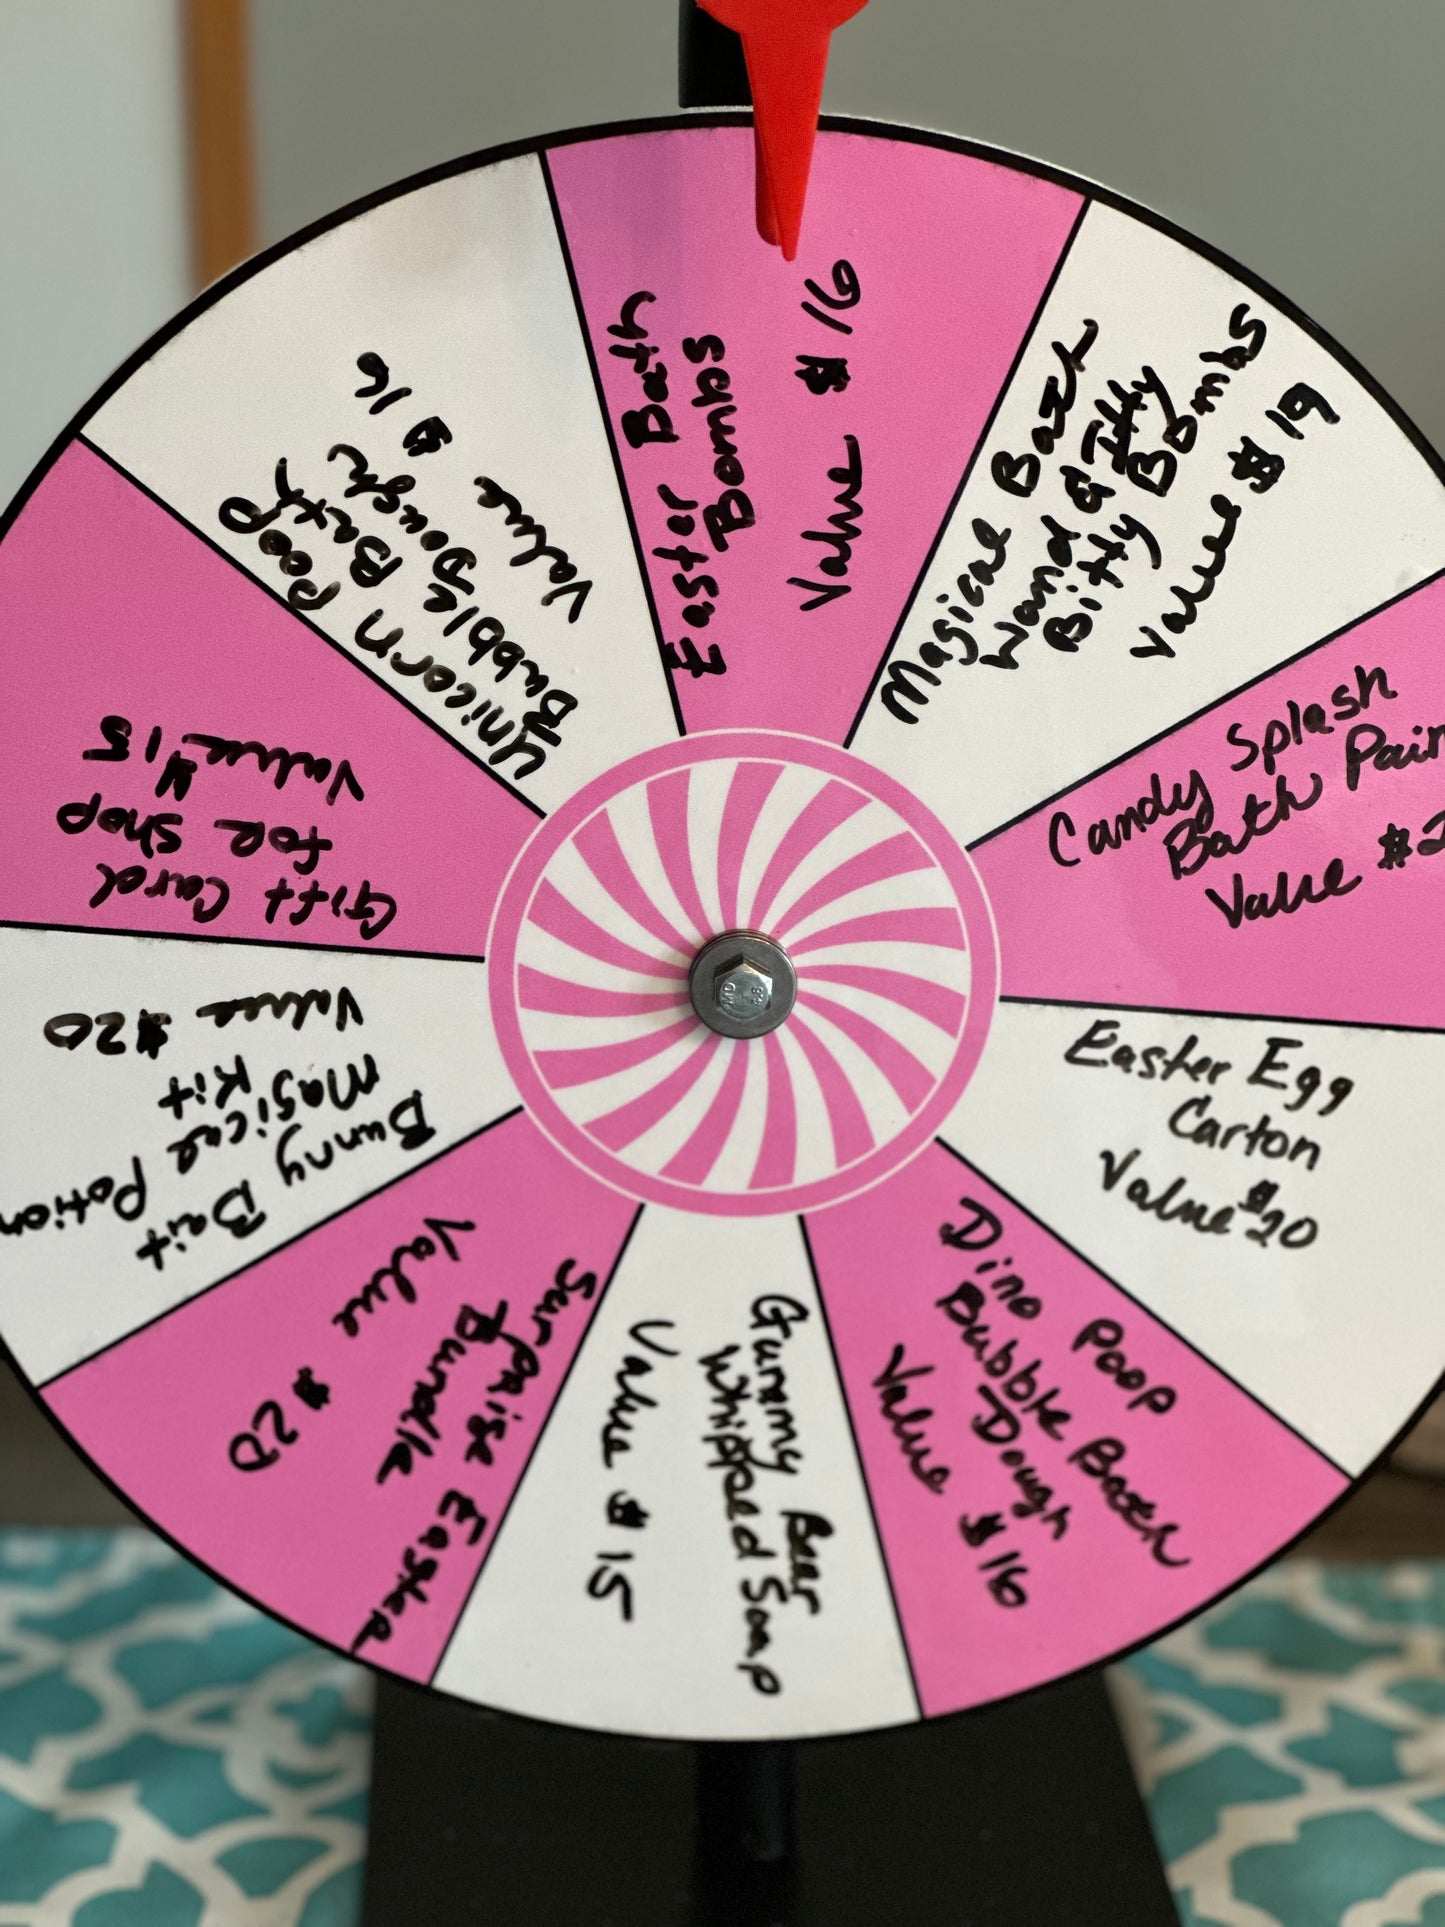 Easter Bath
Bombs
Value $16
Magical Bath
Wand & Itty
Bitty Bombs
Value $19
Candy Splash
Bath
Value
Easter Egg
Carton
Value $20
Dino Poop
Bubble Bath
Dough
Value $16
Gummy Bear
Whipped Soap
Value $15
Surprise Easter
Bundle
Value $20
Bunny Bait
Magical Potion
Kit
Value $20
Gift Card
for Shop
Value
$15
Unicorn Poop
Bubble Bath
Dough
Value $16
MD
4.8